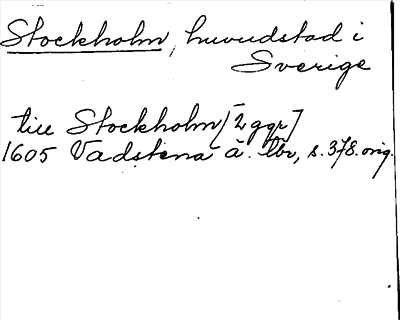 Stockholm, huvudstad i
Sverige
till Stockholm [2 ggr]
1605 Vadstena ä. lbr, s. 378. orig.